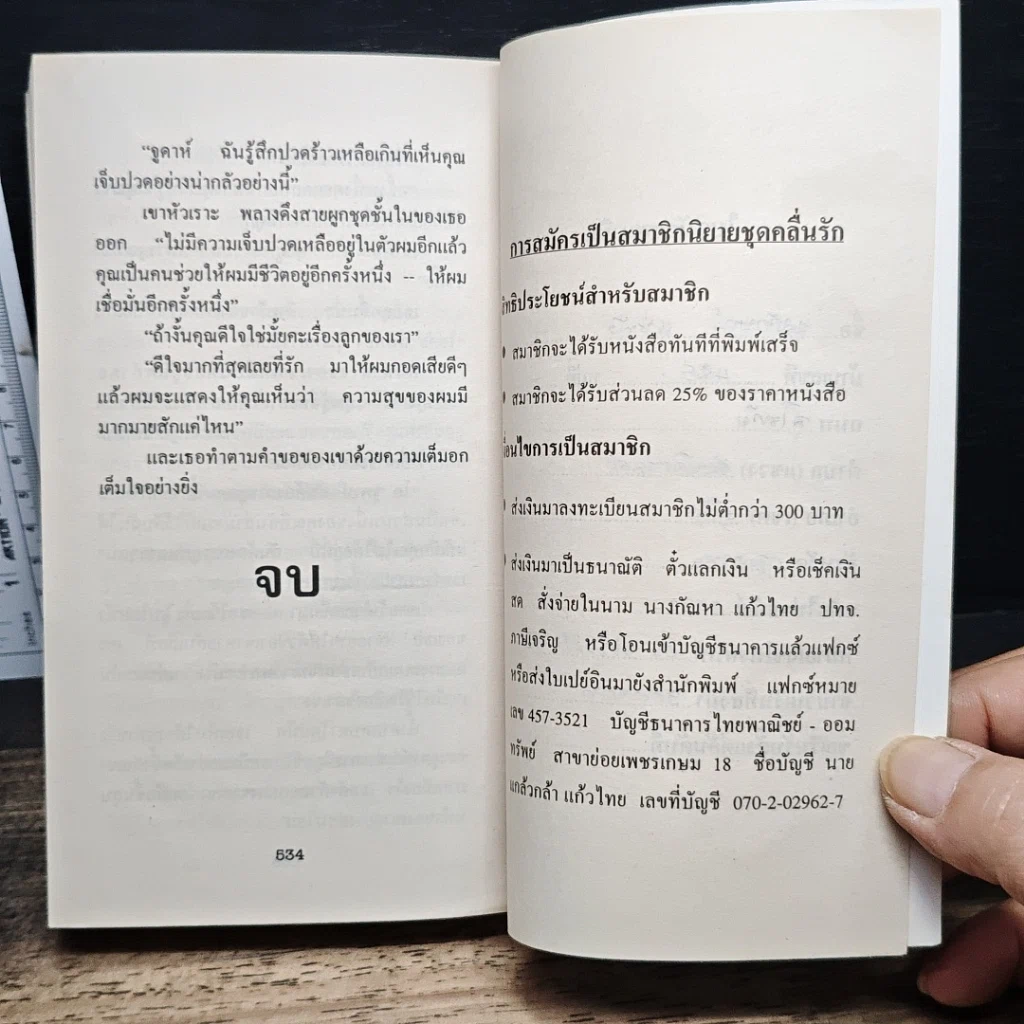 “จูดาห์ ฉันรู้สึกปวดร้าวเหลือเกินที่เห็นคุณ
เจ็บปวดอย่างน่ากลัวอย่างนี้”
เขาหัวเราะ พลางดึงสายผูกชุดชั้นในของเธอ
ออก “ไม่มีความเจ็บปวดเหลืออยู่ในตัวผมอีกแล้ว
คุณเป็นคนช่วยให้ผมมีชีวิตอยู่อีกครั้งหนึ่ง -- ให้ผม
เชื่อมั่นอีกครั้งหนึ่ง”
“ถ้างั้นคุณดีใจใช่มั้ยคะเรื่องลูกของเรา”
“ดีใจมากที่สุดเลยที่รัก มาให้ผมกอดเสียดีๆ
แล้วผมจะแสดงให้คุณเห็นว่า ความสุขของผมมี
มากมายสักแค่ไหน”
และเธอทำตามคำขอของเขาด้วยความเต็มอก
เต็มใจอย่างยิ่ง
จบ
534
การสมัครเป็นสมาชิกนิยายชุดคลื่นรัก
สิทธิประโยชน์สำหรับสมาชิก
สมาชิกจะได้รับหนังสือทันทีที่พิมพ์เสร็จ
สมาชิกจะได้รับส่วนลด 25% ของราคาหนังสือ
เงื่อนไขการเป็นสมาชิก
ส่งเงินมาลงทะเบียนสมาชิกไม่ต่ำกว่า 300 บาท
ส่งเงินมาเป็นธนาณัติ ตั๋วแลกเงิน หรือเช็คเงิน
สด สั่งจ่ายในนาม นางกัณหา แก้วไทย ปทจ.
ภาษีเจริญ หรือโอนเข้าบัญชีธนาคารแล้วแฟกซ์
หรือส่งใบเปย์อินมายังสำนักพิมพ์ แฟกซ์หมาย
เลข 457-3521 บัญชีธนาคารไทยพาณิชย์ - ออม
ทรัพย์ สาขาย่อยเพชรเกษม 18 ชื่อบัญชี นาย
แกล้วกล้า แก้วไทย เลขที่บัญชี 070-2-02962-7